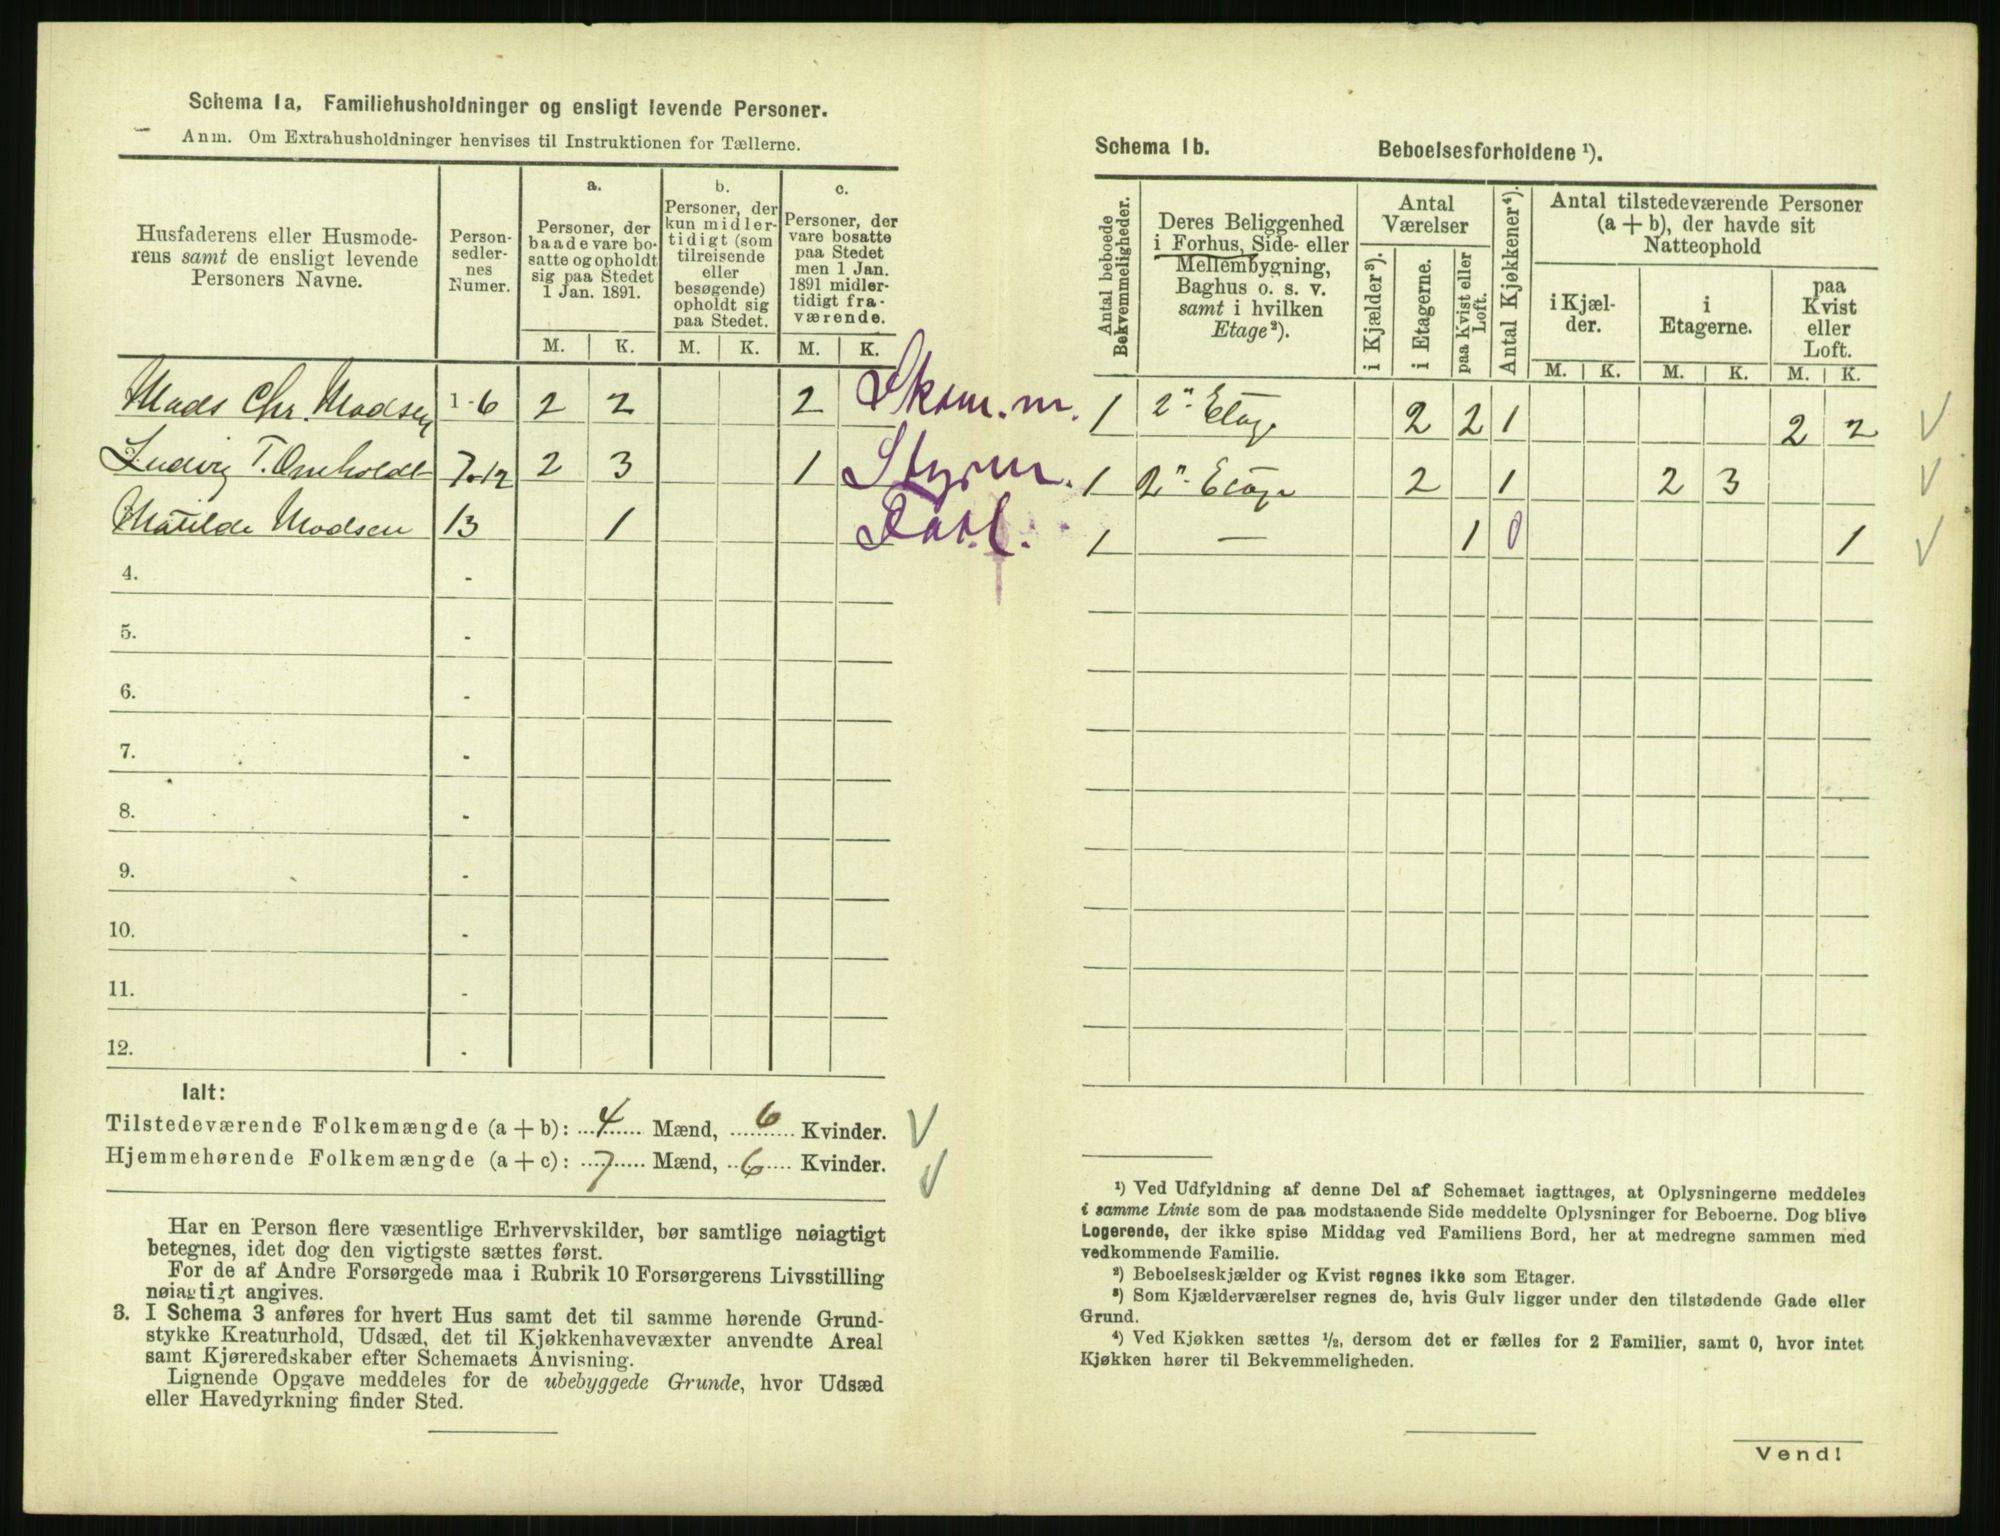 Schema 1a. Familiehusholdninger og ensligt levende Personer.
Anm. Om Extrahusholdninger henvises til Instruktionen for Tællerne.
Husfaderens eller Husmode-
rens samt de ensligt levende
Personers Navne.
Person-
sedler-
nes
Numer.
a.
Personer, der
baade vare bo-
satte og opholdt
sig paa Stedet
1 Jan. 1891.
b.
Personer, der
kun midler-
tidigt (som
tilreisende
eller
besøgende)
opholdt sig
paa Stedet.
c.
Personer, der
vare bosatte
paa Stedet
men 1 Jan.
1891 midler-
tidigt fra-
værende.
M. K. M. K. M. K.
Mads Chr. Madsen 1-6 2 2 2 Skom.m.
Ludvig T. Omholdt 7-12 2 3 1 Styrm.
Matilde Madsen 13 1
4. -
5. -
6. -
7. -
8. -
9. -
10. -
11. -
12. -
Ialt:
Tilstedeværende Folkemængde (a + b): 4 Mænd, 6 Kvinder.
Hjemmehørende Folkemængde (a + c): 7 Mænd, 6 Kvinder.
Har en Person flere væsentlige Erhvervskilder, bør samtlige nøiagtigt
betegnes, idet dog den vigtigste sættes først.
For de af Andre Forsørgede maa i Rubrik 10 Forsørgerens Livsstilling
nøiagtigt angives.
3. I Schema 3 anføres for hvert Hus samt det til samme hørende Grund-
stykke Kreaturhold, Udsæd, det til Kjøkkenhavevæxter anvendte Areal
samt Kjøreredskaber efter Schemaets Anvisning.
Lignende Opgave meddeles for de ubebyggede Grunde, hvor Udsæd
eller Havedyrkning finder Sted.
Schema 1b. Beboelsesforholdene ¹).
Antal beboede
Bekvemmeligheder.
Deres Beliggenhed
i Forhus, Side- eller
Mellembygning,
Baghus o. s. v.
samt i hvilken
Etage ²).
Antal
Værelser
i Kjælder ³).
i Etagerne.
paa Kvist eller
Loft.
Antal Kjøkkener ⁴).
Antal tilstedeværende Personer
(a + b), der havde sit
Natteophold
i Kjæl-
der.
i
Etagerne.
paa
Kvist
eller
Loft.
M. K. M. K. M. K.
1 2" Etage 2 2 1 2 2
1 2" Etage 2 1 2 3
1 — 1 0 1
¹) Ved Udfyldning af denne Del af Schemaet iagttages, at Oplysningerne meddeles
i samme Linie som de paa modstaaende Side meddelte Oplysninger for Beboerne. Dog blive
Logerende, der ikke spise Middag ved Familiens Bord, her at medregne sammen med
vedkommende Familie.
²) Beboelseskjælder og Kvist regnes ikke som Etager.
³) Som Kjælderværelser regnes de, hvis Gulv ligger under den tilstødende Gade eller
Grund.
⁴) Ved Kjøkken sættes ½, dersom det er fælles for 2 Familier, samt 0, hvor intet
Kjøkken hører til Bekvemmeligheden.
Vend!